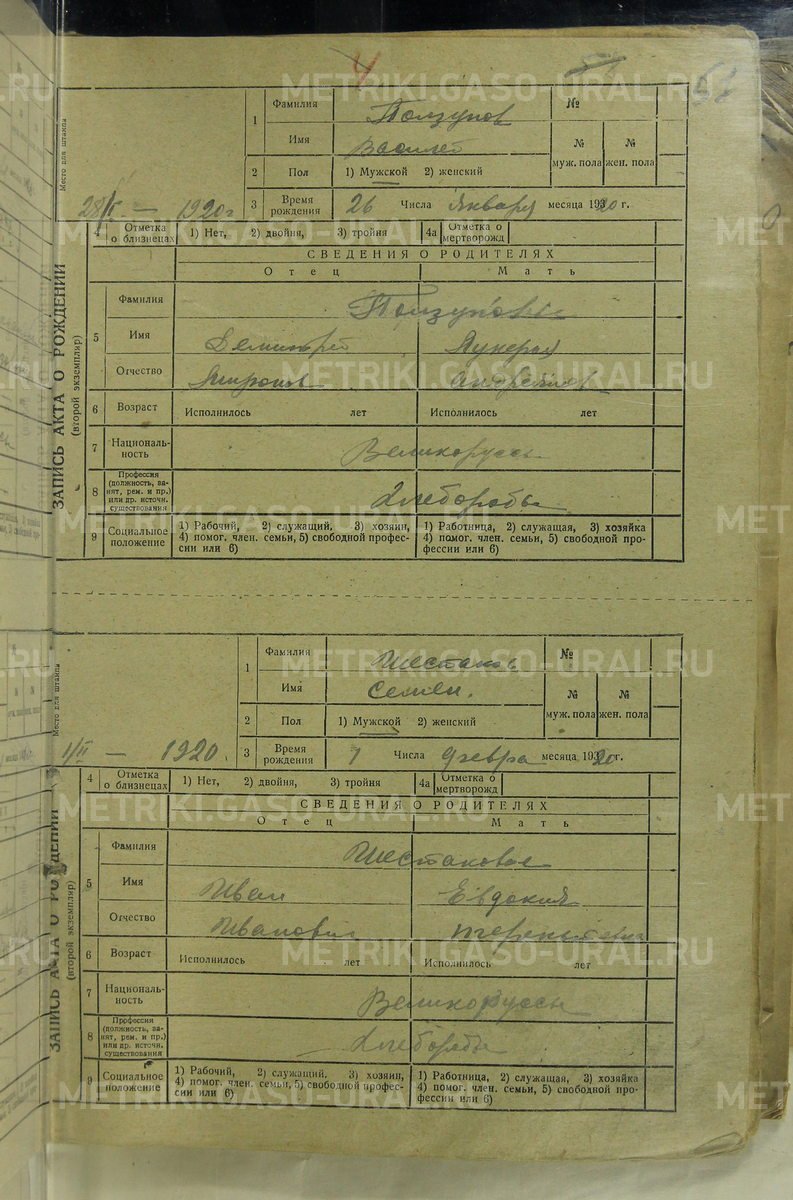 4
51
Место для штампа
28/I — 1920 г
1
Фамилия
Ползунов
№
Имя
Василей
№ муж. пола
№ жен. пола
2
Пол
1) Мужской 2) женский
3
Время рождения
26 Числа Январу месяца 1920 г.
4
Отметка о близнецах
1) Нет, 2) двойня, 3) тройня
4а
Отметка о мертворожд
ЗАПИСЬ АКТА О РОЖДЕНИИ
(второй экземпляр)
СВЕДЕНИЯ О РОДИТЕЛЯХ
Отец
Мать
5
Фамилия
Ползуновы
Имя
Отчество
6
Возраст
Исполнилось лет
Исполнилось лет
7
Националь-
ность
Великоруссы
8
Профессия
(должность, за-
нят, рем. и пр.)
или др. источн.
существования
Хлеборобы
9
Социальное
положение
1) Рабочий, 2) служащий, 3) хозяин,
4) помог. член. семьи, 5) свободной профес-
сии или 6)
1) Работница, 2) служащая, 3) хозяйка
4) помог. член. семьи, 5) свободной про-
фессии или 6)
Место для штампа
1/II — 1920.
1
Фамилия
Шестаков
№
Имя
Семен.
№ муж. пола
№ жен. пола
2
Пол
1) Мужской 2) женский
3
Время рождения
1 Числа Февра месяца 1920 г.
4
Отметка о близнецах
1) Нет, 2) двойня, 3) тройня
4а
Отметка о мертворожд
ЗАПИСЬ АКТА О РОЖДЕНИИ
(второй экземпляр)
СВЕДЕНИЯ О РОДИТЕЛЯХ
Отец
Мать
5
Фамилия
Шестаковые
Имя
Иван
Евдокия
Отчество
Иванович
6
Возраст
Исполнилось лет
Исполнилось лет
7
Националь-
ность
Великоруссы
8
Профессия
(должность, за-
нят, рем. и пр.)
или др. источн.
существования
Хлеборобы
9
Социальное
положение
1) Рабочий, 2) служащий. 3) хозяин,
4) помог. член. семьи, 5) свободной профес-
сии или 6)
1) Работница, 2) служащая, 3) хозяйка
4) помог. член. семьи, 5) свободной про-
фессии или 6)
METRIKI.GASO-URAL.RU